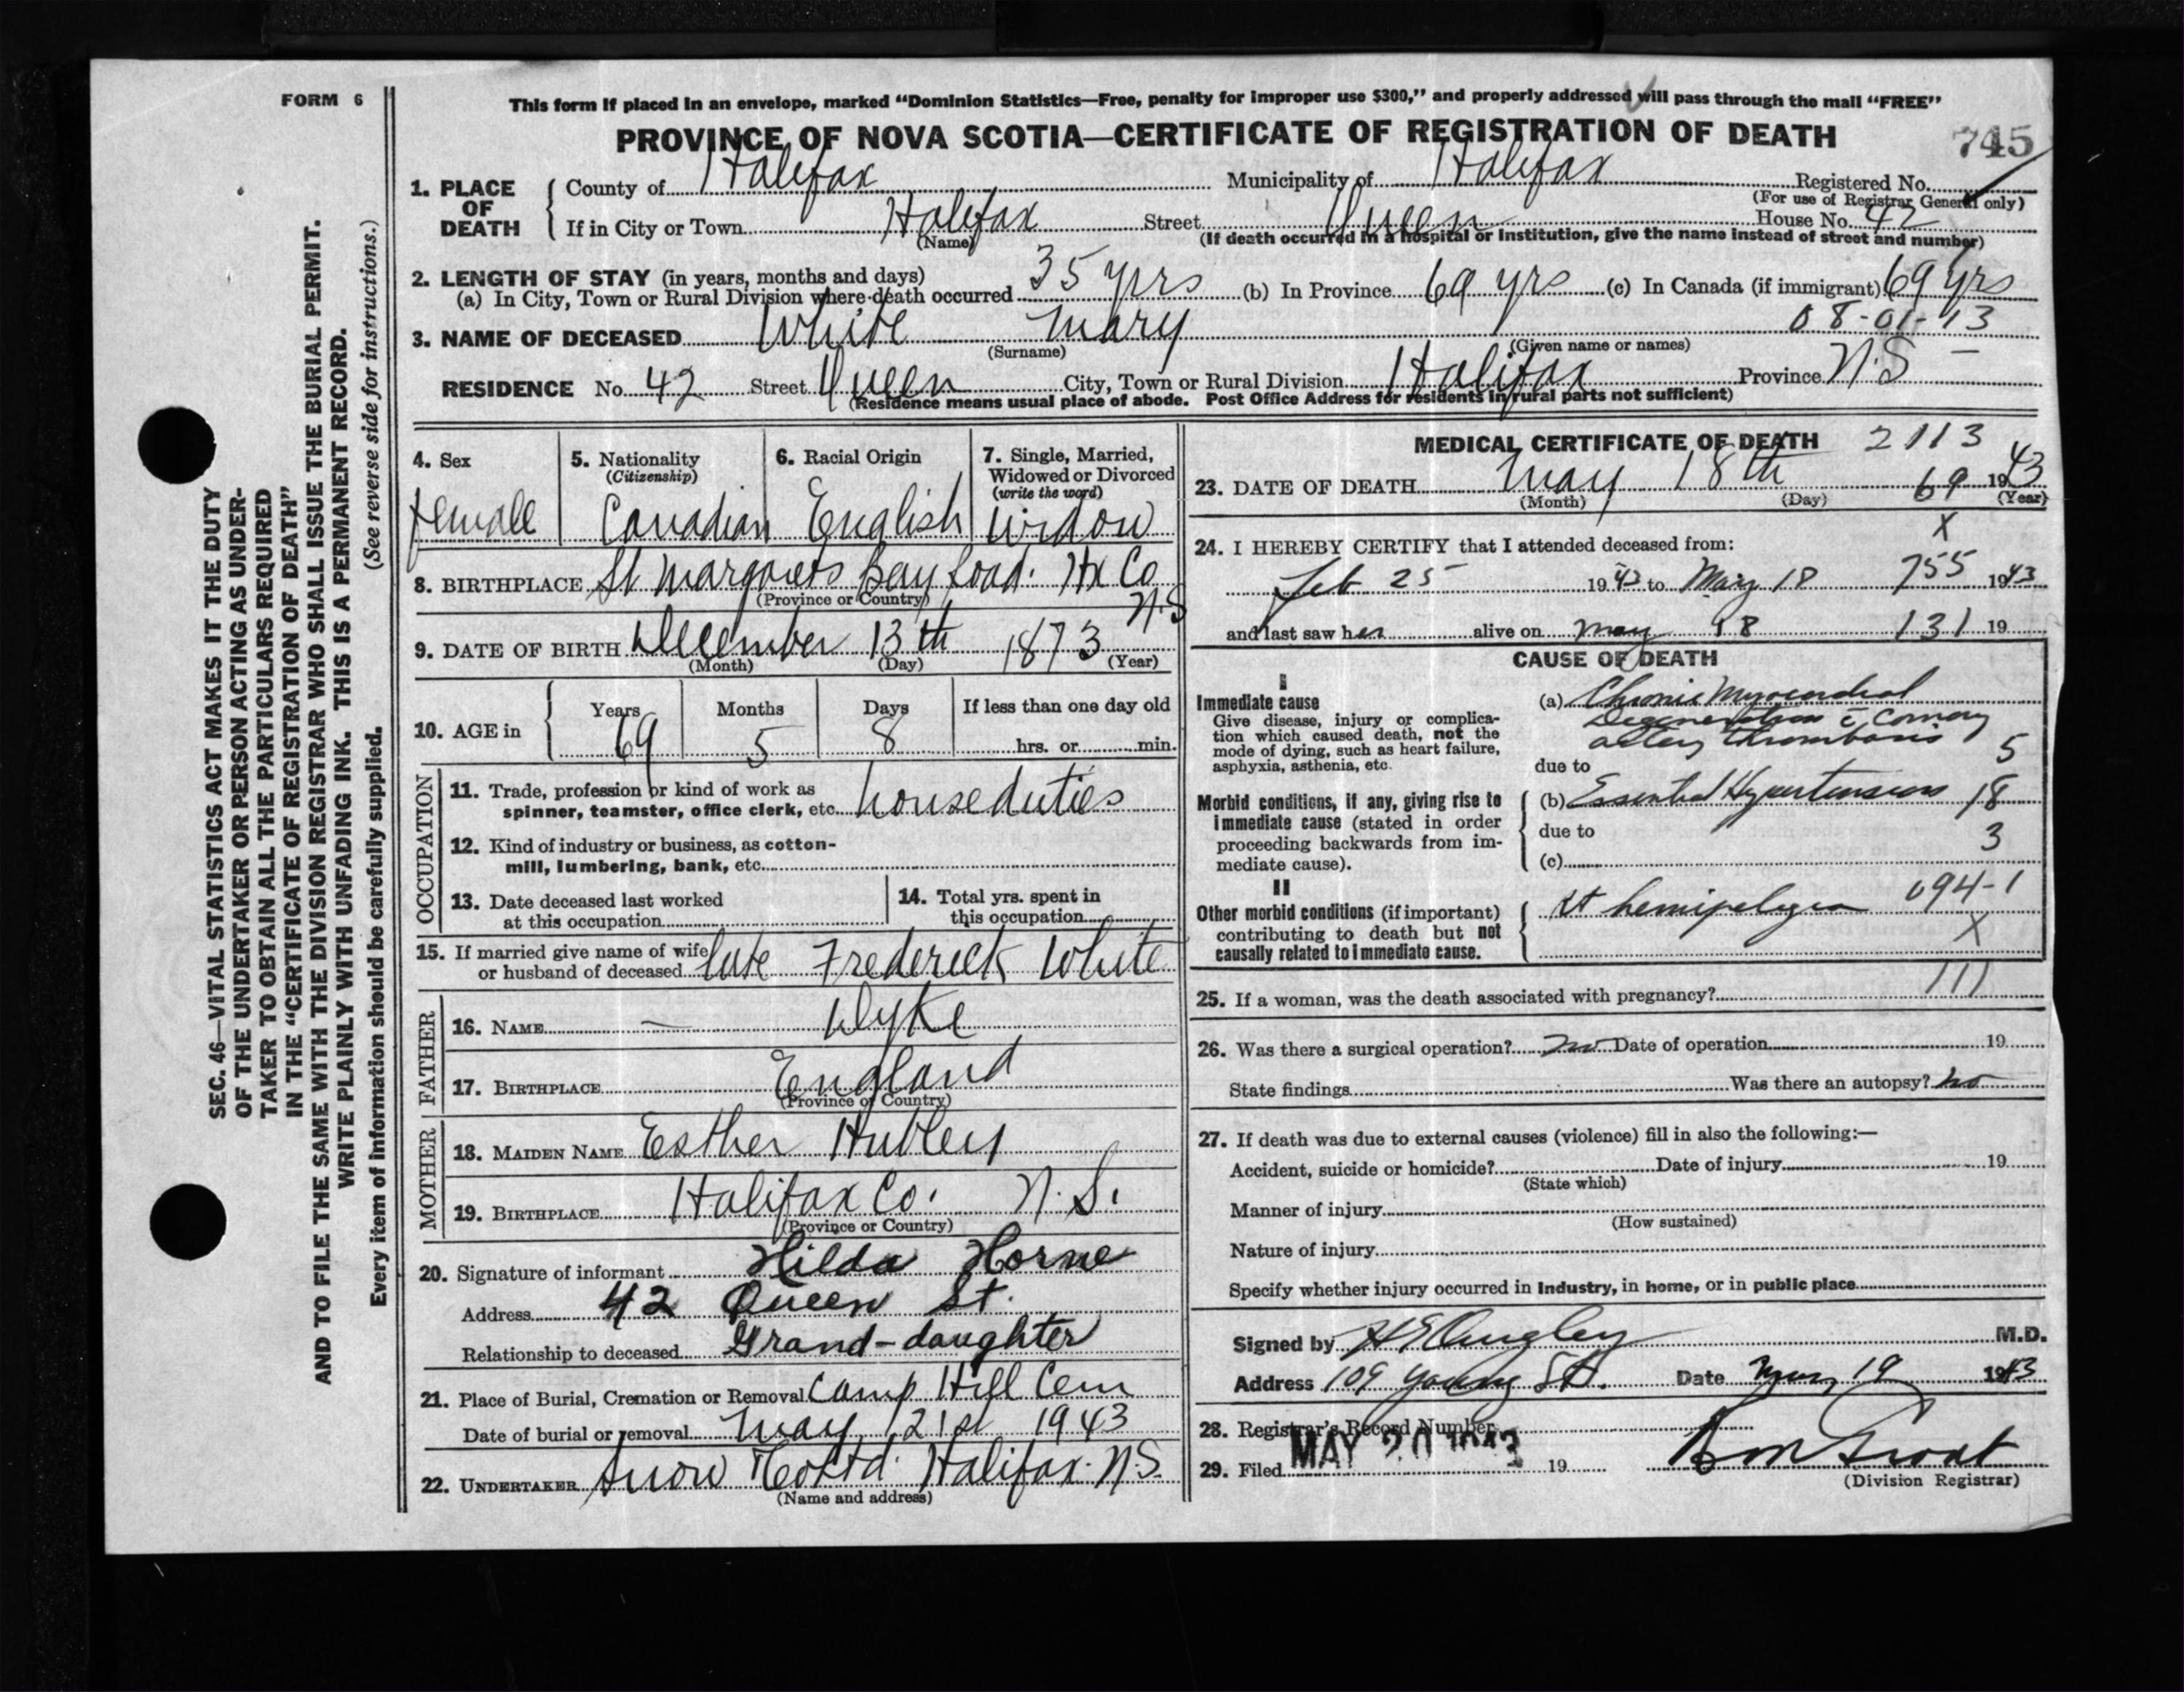 FORM 6
This form if placed in an envelope, marked “Dominion Statistics—Free, penalty for improper use $300,” and properly addressed will pass through the mail “FREE”
PROVINCE OF NOVA SCOTIA—CERTIFICATE OF REGISTRATION OF DEATH
745
1. PLACE OF DEATH
County of Halifax Municipality of Halifax Registered No.
(For use of Registrar General only)
If in City or Town Halifax Street Queen House No. 42
(Name) (If death occurred in a hospital or institution, give the name instead of street and number)
2. LENGTH OF STAY (in years, months and days)
(a) In City, Town or Rural Division where death occurred 35 yrs (b) In Province 69 yrs (c) In Canada (if immigrant) 69 yrs
08-01-13
3. NAME OF DECEASED White Mary
(Surname) (Given name or names)
RESIDENCE No. 42 Street Queen City, Town or Rural Division Halifax Province N.S –
(Residence means usual place of abode. Post Office Address for residents in rural parts not sufficient)
4. Sex
female
5. Nationality
(Citizenship)
Canadian
6. Racial Origin
English
7. Single, Married, Widowed or Divorced
(write the word)
Widow
8. BIRTHPLACE St Margarets Bay Road. Hx Co
(Province or Country) N.S
9. DATE OF BIRTH December 13th 1873
(Month) (Day) (Year)
10. AGE in
Years Months Days If less than one day old
69 5 8 hrs. or min.
OCCUPATION
11. Trade, profession or kind of work as
spinner, teamster, office clerk, etc. house duties
12. Kind of industry or business, as cotton-
mill, lumbering, bank, etc.
13. Date deceased last worked
at this occupation
14. Total yrs. spent in
this occupation
15. If married give name of wife
or husband of deceased late Frederick White
FATHER
16. NAME — Dyke
17. BIRTHPLACE England
(Province or Country)
MOTHER
18. MAIDEN NAME Esther Hubley
19. BIRTHPLACE Halifax Co. N.S.
(Province or Country)
20. Signature of informant Hilda Horne
Address 42 Queen St.
Relationship to deceased Grand-daughter
21. Place of Burial, Cremation or Removal Camp Hill Cem
Date of burial or removal May 21st 1943
22. UNDERTAKER Snow & Co Ltd. Halifax. N.S.
(Name and address)
MEDICAL CERTIFICATE OF DEATH 2113
23. DATE OF DEATH May 18th 69 1943
(Month) (Day) (Year)
X
24. I HEREBY CERTIFY that I attended deceased from:
Feb 25 1943 to May 18 755 1943
and last saw her alive on May 18 131 19
CAUSE OF DEATH
I
Immediate cause
Give disease, injury or complica-
tion which caused death, not the
mode of dying, such as heart failure,
asphyxia, asthenia, etc.
(a) Chronic Myocardial
Degeneration c̄ Coronary
artery thrombosis 5
due to
Morbid conditions, if any, giving rise to
immediate cause (stated in order
proceeding backwards from im-
mediate cause).
(b) Essential Hypertension 18
due to 3
(c)
II
Other morbid conditions (if important)
contributing to death but not
causally related to immediate cause.
hemipelgia 094-1
X
25. If a woman, was the death associated with pregnancy? 111
26. Was there a surgical operation? no Date of operation 19
State findings Was there an autopsy? no
27. If death was due to external causes (violence) fill in also the following:—
Accident, suicide or homicide? Date of injury 19
(State which)
Manner of injury
(How sustained)
Nature of injury
Specify whether injury occurred in industry, in home, or in public place
Signed by M.D.
Address 109 Young St. Date May 19 1943
28. Registrar's Record Number
29. Filed MAY 20 1943 19
(Division Registrar)
SEC. 46—VITAL STATISTICS ACT MAKES IT THE DUTY
OF THE UNDERTAKER OR PERSON ACTING AS UNDER-
TAKER TO OBTAIN ALL THE PARTICULARS REQUIRED
IN THE “CERTIFICATE OF REGISTRATION OF DEATH”
AND TO FILE THE SAME WITH THE DIVISION REGISTRAR WHO SHALL ISSUE THE BURIAL PERMIT.
WRITE PLAINLY WITH UNFADING INK. THIS IS A PERMANENT RECORD.
Every item of information should be carefully supplied. (See reverse side for instructions.)